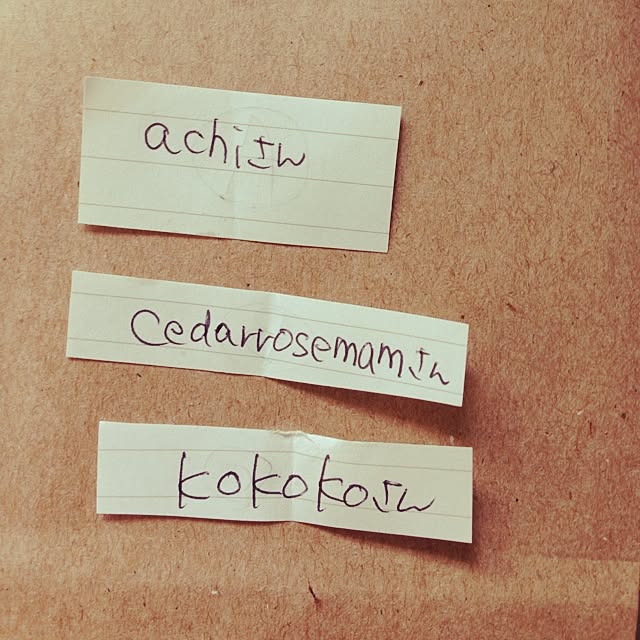 achiさん
Cedarrosemamさん
kokokoさん